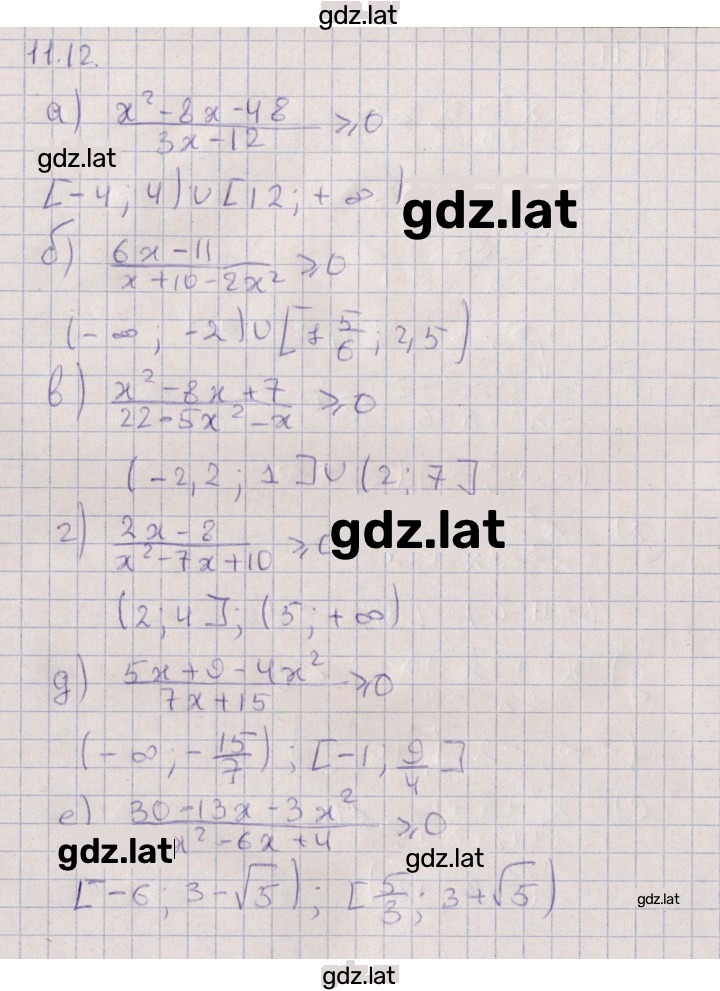 gdz.lat
11.12.
а) (x² - 8x - 48)/(3x - 12) ⩾ 0
gdz.lat
[-4; 4) ∪ [12; +∞)
gdz.lat
б) (6x - 11)/(x + 10 - 2x²) ⩾ 0
(-∞; -2) ∪ [1 5/6; 2,5)
в) (x² - 8x + 7)/(22 - 5x² - x) ⩾ 0
(-2,2; 1] ∪ (2; 7]
г) (2x - 8)/(x² - 7x + 10) ⩾ 0
gdz.lat
(2; 4]; (5; +∞)
д) (5x + 9 - 4x²)/(7x + 15) ⩾ 0
(-∞; -15/7); [-1; 9/4]
е) (30 - 13x - 3x²)/(x² - 6x + 4) ⩾ 0
gdz.lat
gdz.lat
[-6; 3 - √5); [5/3; 3 + √5)
gdz.lat
gdz.lat